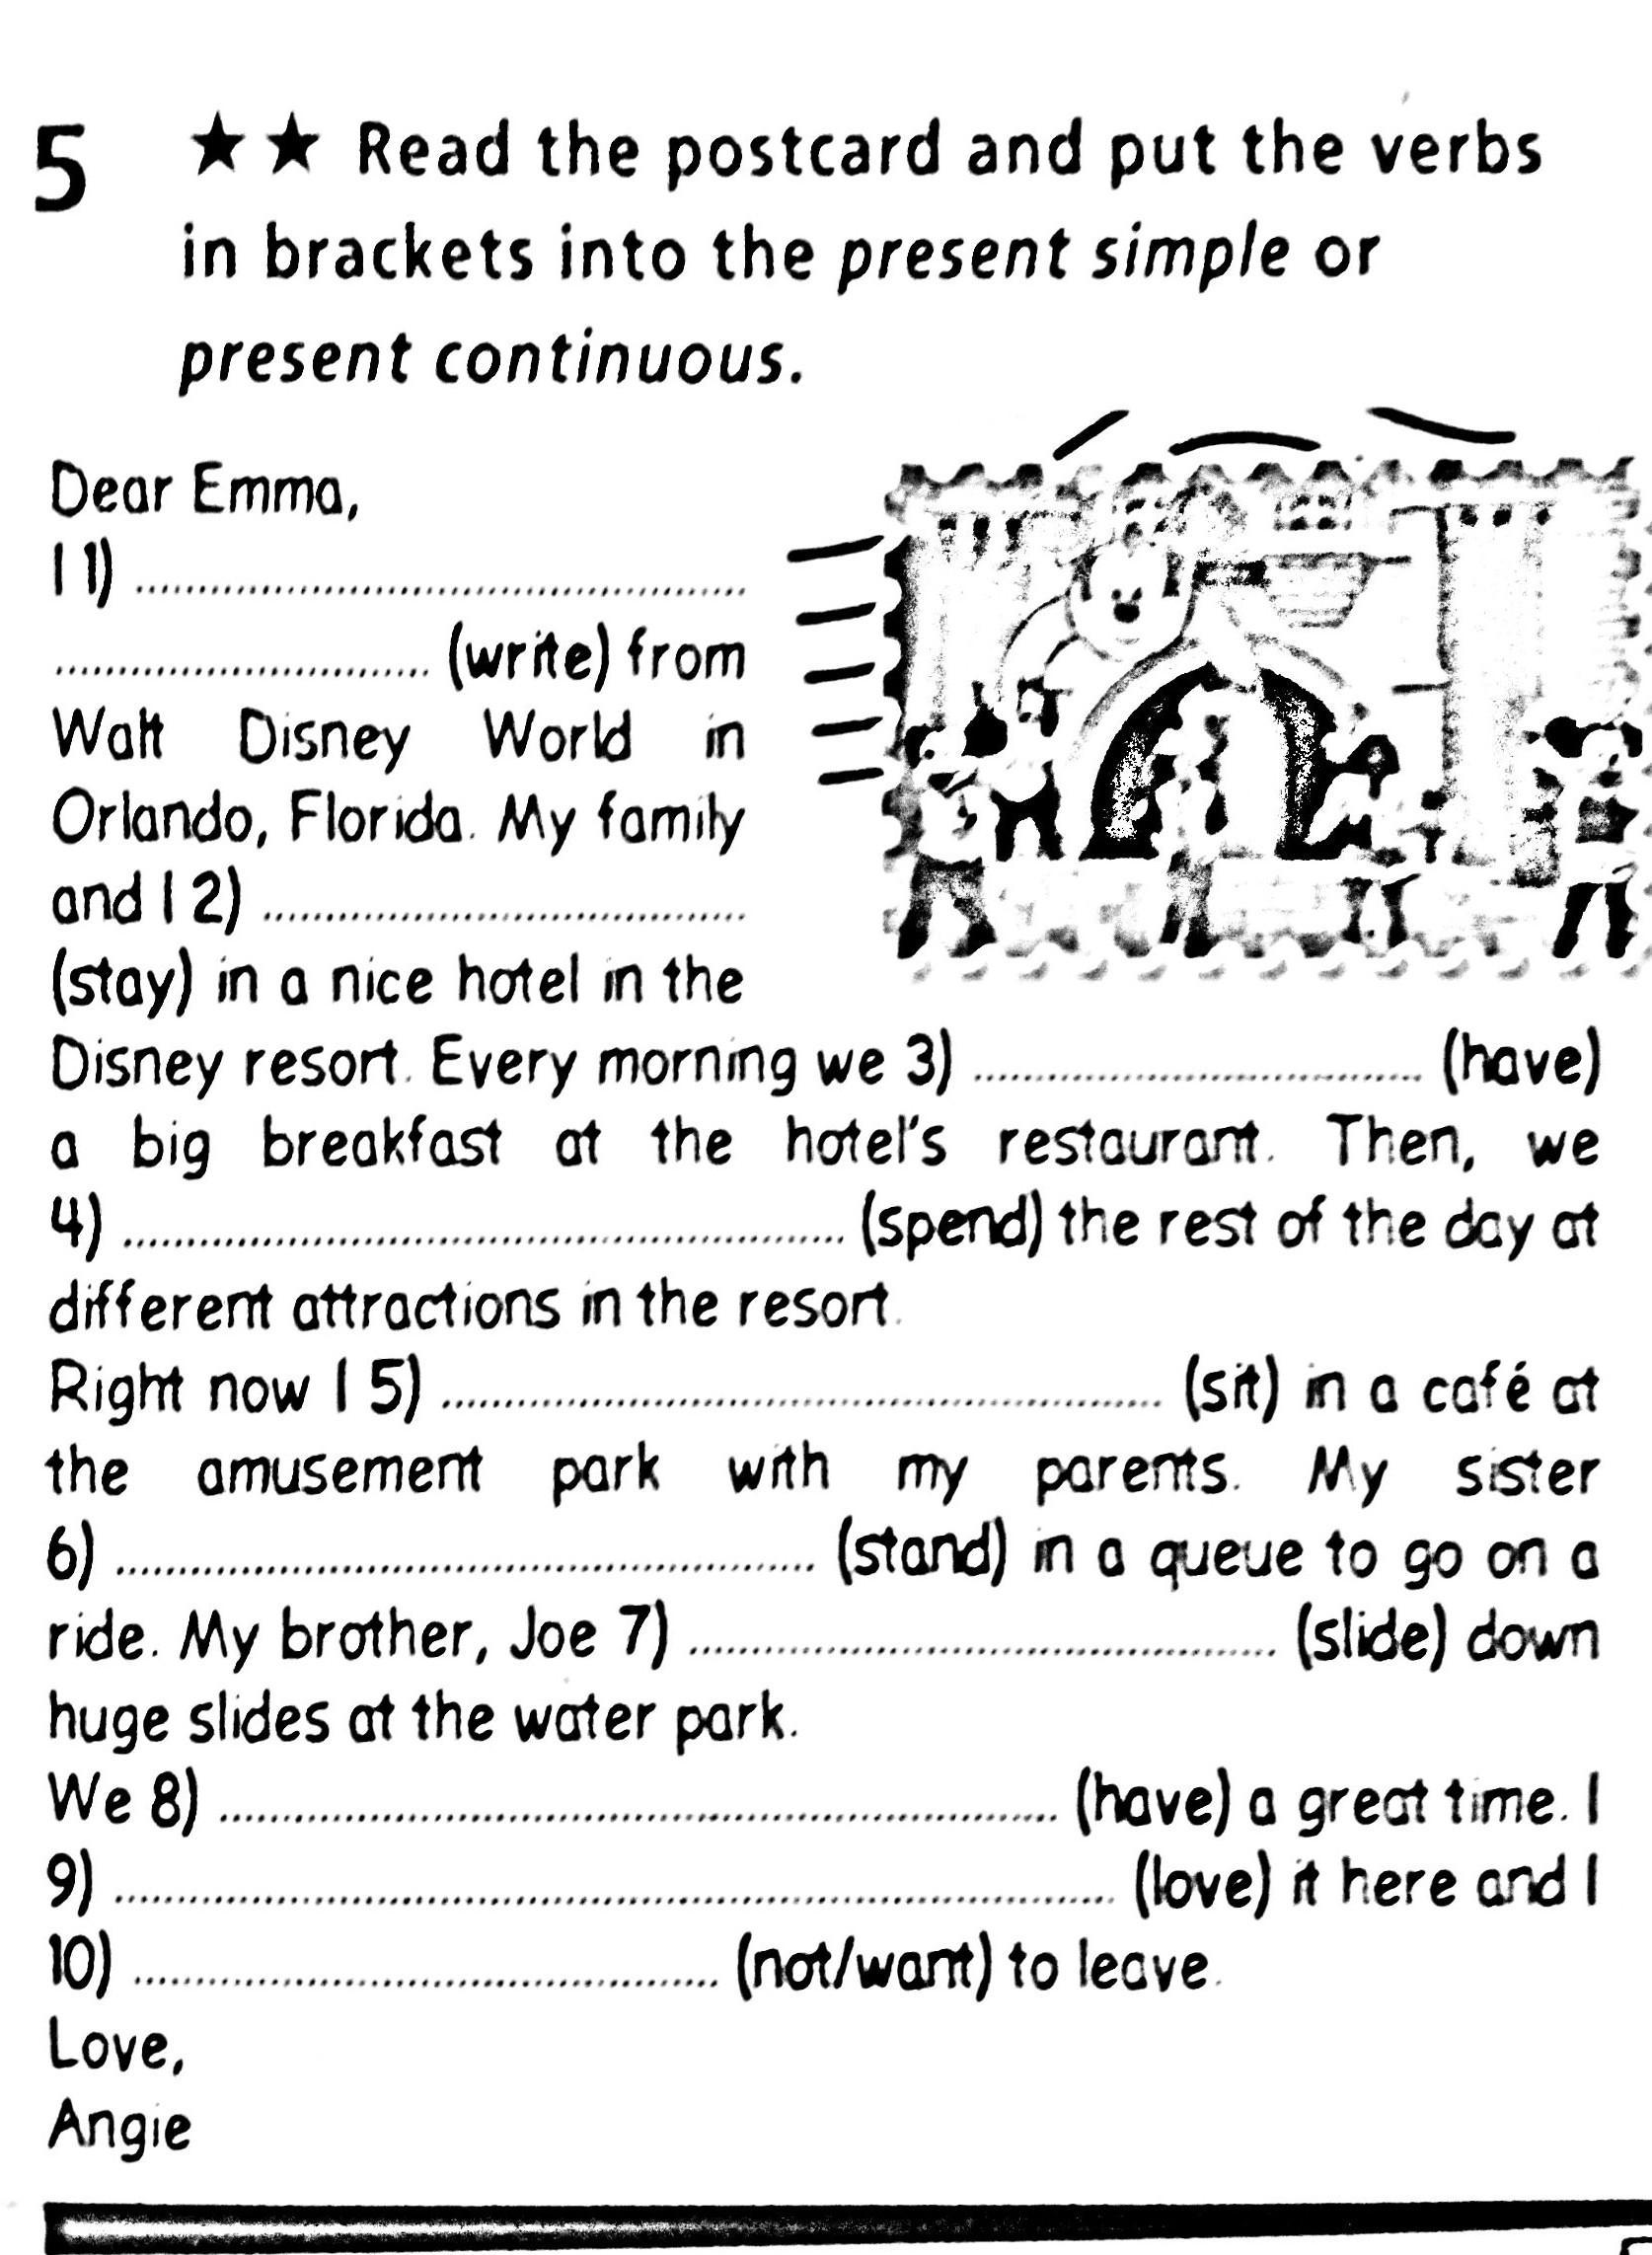 5 ★★ Read the postcard and put the verbs
in brackets into the present simple or
present continuous.
Dear Emma,
I 1) ................................................
.............................. (write) from
Walt Disney World in
Orlando, Florida. My family
and I 2) ......................................
(stay) in a nice hotel in the
Disney resort. Every morning we 3) ................................... (have)
a big breakfast at the hotel's restaurant. Then, we
4) ......................................................... (spend) the rest of the day at
different attractions in the resort.
Right now I 5) ......................................................... (sit) in a café at
the amusement park with my parents. My sister
6) ....................................................... (stand) in a queue to go on a
ride. My brother, Joe 7) .............................................. (slide) down
huge slides at the water park.
We 8) .................................................................. (have) a great time. I
9) ............................................................................... (love) it here and I
10) .............................................. (not/want) to leave.
Love,
Angie